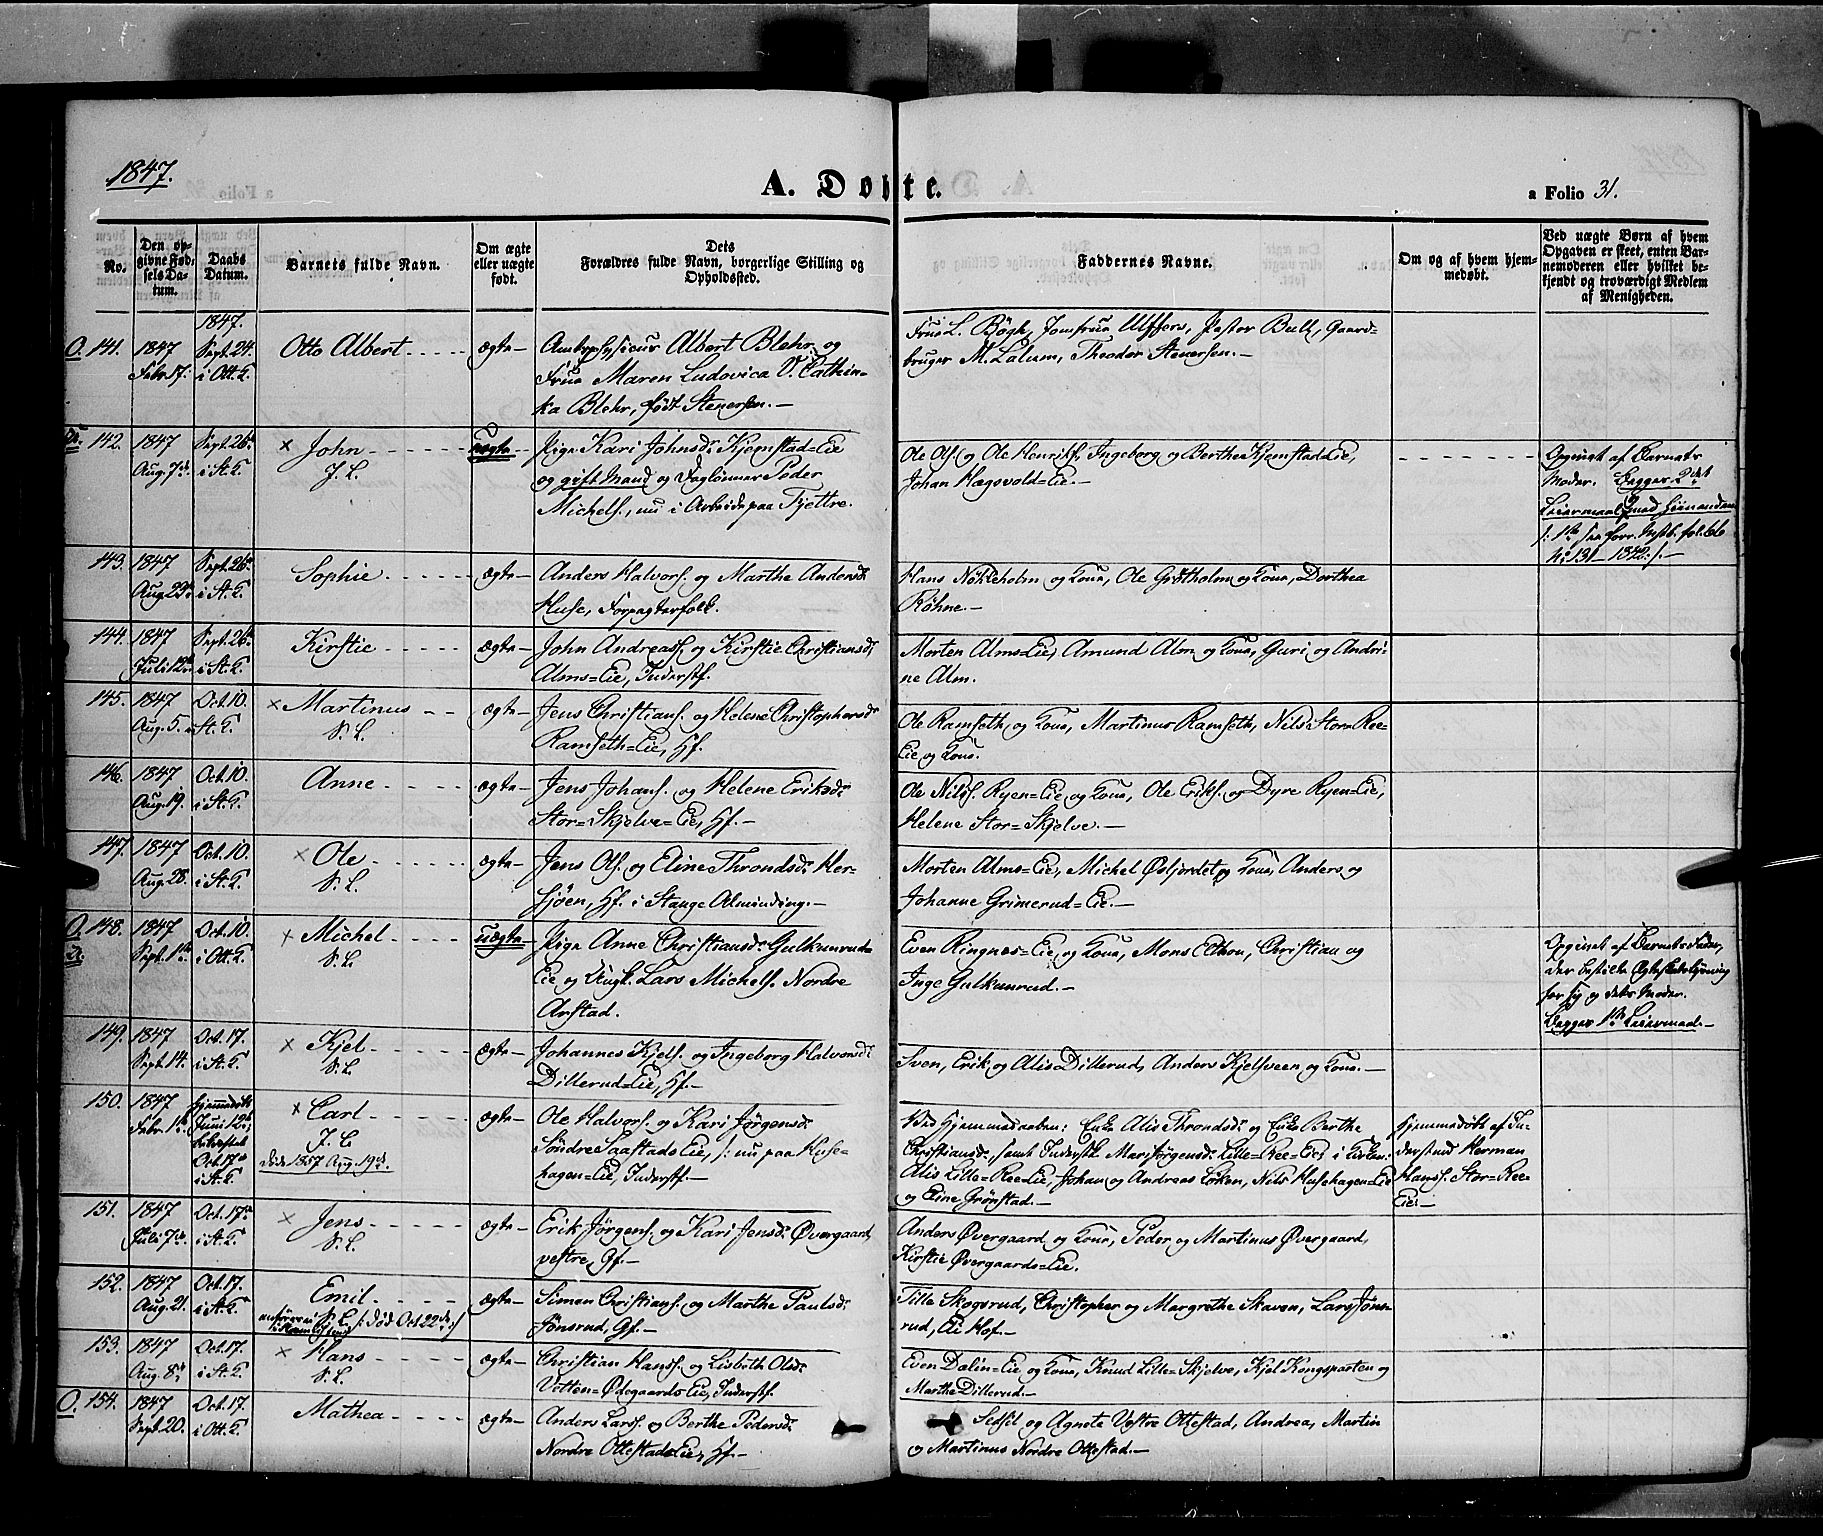 1847.
A. Døbte.
a Folio 31.
No.
Den op-
givne Fød-
sels Da-
tum.
Daabs
Datum.
Barnets fulde Navn.
Om ægte
eller uægte
født.
Dets
Forældres fulde Navn, borgerlige Stilling og
Opholdssted.
Faddernes Navne.
Om og af hvem hjem-
medøbt.
Ved uægte Børn af hvem
Opgaven er skeet, enten Bar-
nemoderen eller hvilket be-
kjendt og troværdigt Medlem
af Menigheden.
1847.
O. 141. 1847 Sept. 24. Otto Albert ægte Albert Blehr og
Febr. 17. i Ott. K. Frue Maren Ludovica V. Cathin-
ka Blehr, født Stenersen.
Frue L. Bögh, Jomfrue Ulffers, Pastor Bull, Gaard-
bruger M. Lalum, Theodor Stenersen.
142. 1847 Sept. 26. × John uægte Pige Kari Johnsd. Kjemstad=Eie
Aug. 7. i St. K. J. L. og gift Mand og Daglønner Peder
Michels., nu i Arbeide paa Tjettre.
Ole Ols. og Ole Henriks., Ingeborg og Berthe Kjemstad=Eie,
Johan Hægsvold=Eie.
Opgivet af Barnets
Moder. Begges 2det
Leiermaal
No. 131 - 1842.
143. 1847 Sept. 26. Sophie ægte Anders Halvors. og Marthe Andersd.
Aug. 29. i St. K. Huse, Forpagterfolk.
Hans Nökleholm og Kone, Ole Grötholm og Kone, Dorthea
Röhne.
144. 1847 Sept. 26. Kirstie ægte John Andreass. og Kirstie Christiansd.
Juli 12. i St. K. Alms=Eie, Inderstf.
Morten Alms=Eie, Amund Alm og Kone, Guri og Andri-
ne Alm.
145. 1847 Oct. 10. × Martinus ægte Jens Christians. og Helene Christophersd.
Aug. 5. i St. K. S. L. Ramseth=Eie, Hf.
Ole Ramseth og Kone, Martinus Ramseth, Nils Stor=Ree-
Eie og Kone.
146. 1847 Oct. 10. Anne ægte Jens Johans. og Helene Eriksd.
Aug. 19. i St. K. Stor=Skjelve=Eie, Hf.
Ole Nilss. Ryen=Eie og Kone, Ole Eriks. og Dyre Ryen=Eie,
Helene Stor=Skjelve.
147. 1847 Oct. 10. × Ole ægte Jens Ols. og Eline Throndsd. Her-
Aug. 28. i St. K. S. L. sjöen, Hf. i Stange Alminding.
Morten Alms=Eie, MichelÖsljordet og Kone, Anders og
Johanne Grimerud=Eie.
O. 148. 1847 Oct. 10. × Michel uægte Pige Anne Christiansd. Gulkunrud=
Sept. 1. i Ott. K. S. L. Eie og Ungk. Lars Michels. Nordre
Arstad.
Even Ringnes=Eie og Kone, Mons, Christian og
Inge Gulkunrud.
Opgivet af Barnets Fader,
der bestilte Ægteskabslysning
for sig og dets Moder.
Begges 1ste Leiermaal.
149. 1847 Oct. 17. × Kjel ægte Johannes Kjels. og Ingeborg Halvorsd.
Sept. 14. i St. K. S. L. Dillerud=Eie, Hf.
Sven, Erik og Alis Dillerud, Anders Kjelsveen og Kone.
150. 1847 hjemmedöbt Juni 12, Oct. 17 i St. K. × Carl ægte Ole Halvors. og Kari Jörgensd.
Febr. 1. J. L. Söndre Saastads Eie, /: nu paa Huse-
döde 1857 Aug. 19d. hagen=Eie, Inderstf.
Ved Hjemmedaaben: Enke Alis Throndsd. og Enke Berthe
Christiansd., samt Inderstk. Mari Jörgensd. Lille=Ree=Eie; i Kirken:
Alis Lille=Ree=Eie, Johan og Andreas Lörken, Nils Husehagen=Eie
og Eline Grönstad.
Hjemmedöbt af In-
derstmd Herman
Hanss. Stor=Ree-
Eie.
151. 1847 Oct. 17. × Jens ægte Erik Jörgens. og Kari Jensd. Övergaard
Juli 7. i St. K. S. L. vestre, Gf.
Anders Övergaard og Kone, Peder og Martinus Övergaard,
Kirstie Övergaards=Eie.
152. 1847 Oct. 17. Emil ægte Simen Christians. og Marthe Paulsd.
Aug. 21. i St. K. S. L. /: död Oct. 22d. :/ Jönsrud, Gf.
Tille Skogsrud, Christopher og Margrethe Skaven, Lars Jöns-
rud, Eli Hof.
153. 1847 Oct. 17. × Hans ægte Christian Hanss. og Lisbeth Olsd.
Aug. 8. i St. K. S. L. Vetten=Ödegaards Eie, Inderstf.
Even Dalin=Eie og Kone, Knud Lille=Skjelve, Kjel Kongsparten og
Marthe Dillerud.
O. 154. 1847 Oct. 17. Mathea ægte Anders Larss. og Berthe Pedersd.
Sept. 20. i Ott. K. Nordre Ottestads Eie, Hf.
Sedsel og Agnete Vestre Ottestad, Andrea, Martin
og Martinus Nordre Ottestad.